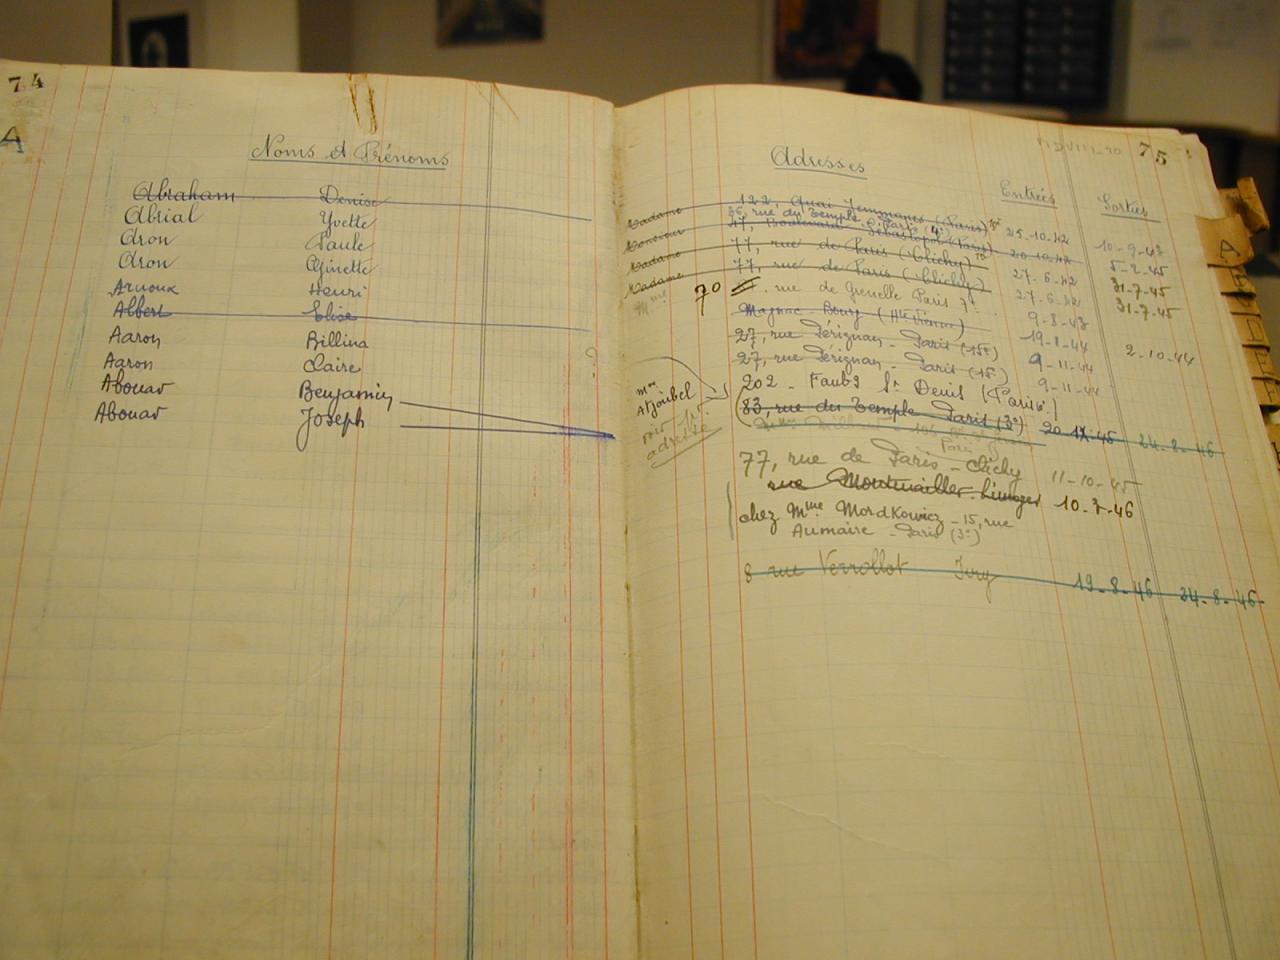 74
A
Noms et Prénoms
Abraham Denise
Abrial Yvette
Aron Paule
Aron Ginette
Arnoux Henri
Albert Elise
Aaron Billina
Aaron Claire
Abouav Benjamin
Abouav Joseph
75
Adresses Entrées Sorties
Madame 122, Quai Jemmapes (Paris) 10e 25-10-42 10-9-43
36, rue du Temple Paris (4e)
Monsieur 47, Boulevard Sébastopol (Paris) 20-10-42 5-2-45
Madame 77, rue de Paris (Clichy) 27-6-42 31-7-45
Madame 77, rue de Paris (Clichy) 27-6-42 31-7-45
Mme 70 rue de Grenelle Paris 7e 9-8-43
Magnac-Bourg (Hte Vienne) 19-8-44 2-10-44
27, rue Pérignan - Paris (15e) 9-11-44
27, rue Pérignan - Paris (15e) 9-11-44
? 202 - Faubg St Denis (Paris)
Mme Atjoubel voir 1re adresse
83, rue du Temple Paris (3e) 20-12-45 24-8-46
Paris
77, rue de Paris - Clichy 11-10-45
rue Montmailler Limoges 10-7-46
chez Mme Mordkowicz - 15, rue
Aumaire - Paris (3e)
8 rue Verrollot Ivry 19-8-46 24-8-46
A